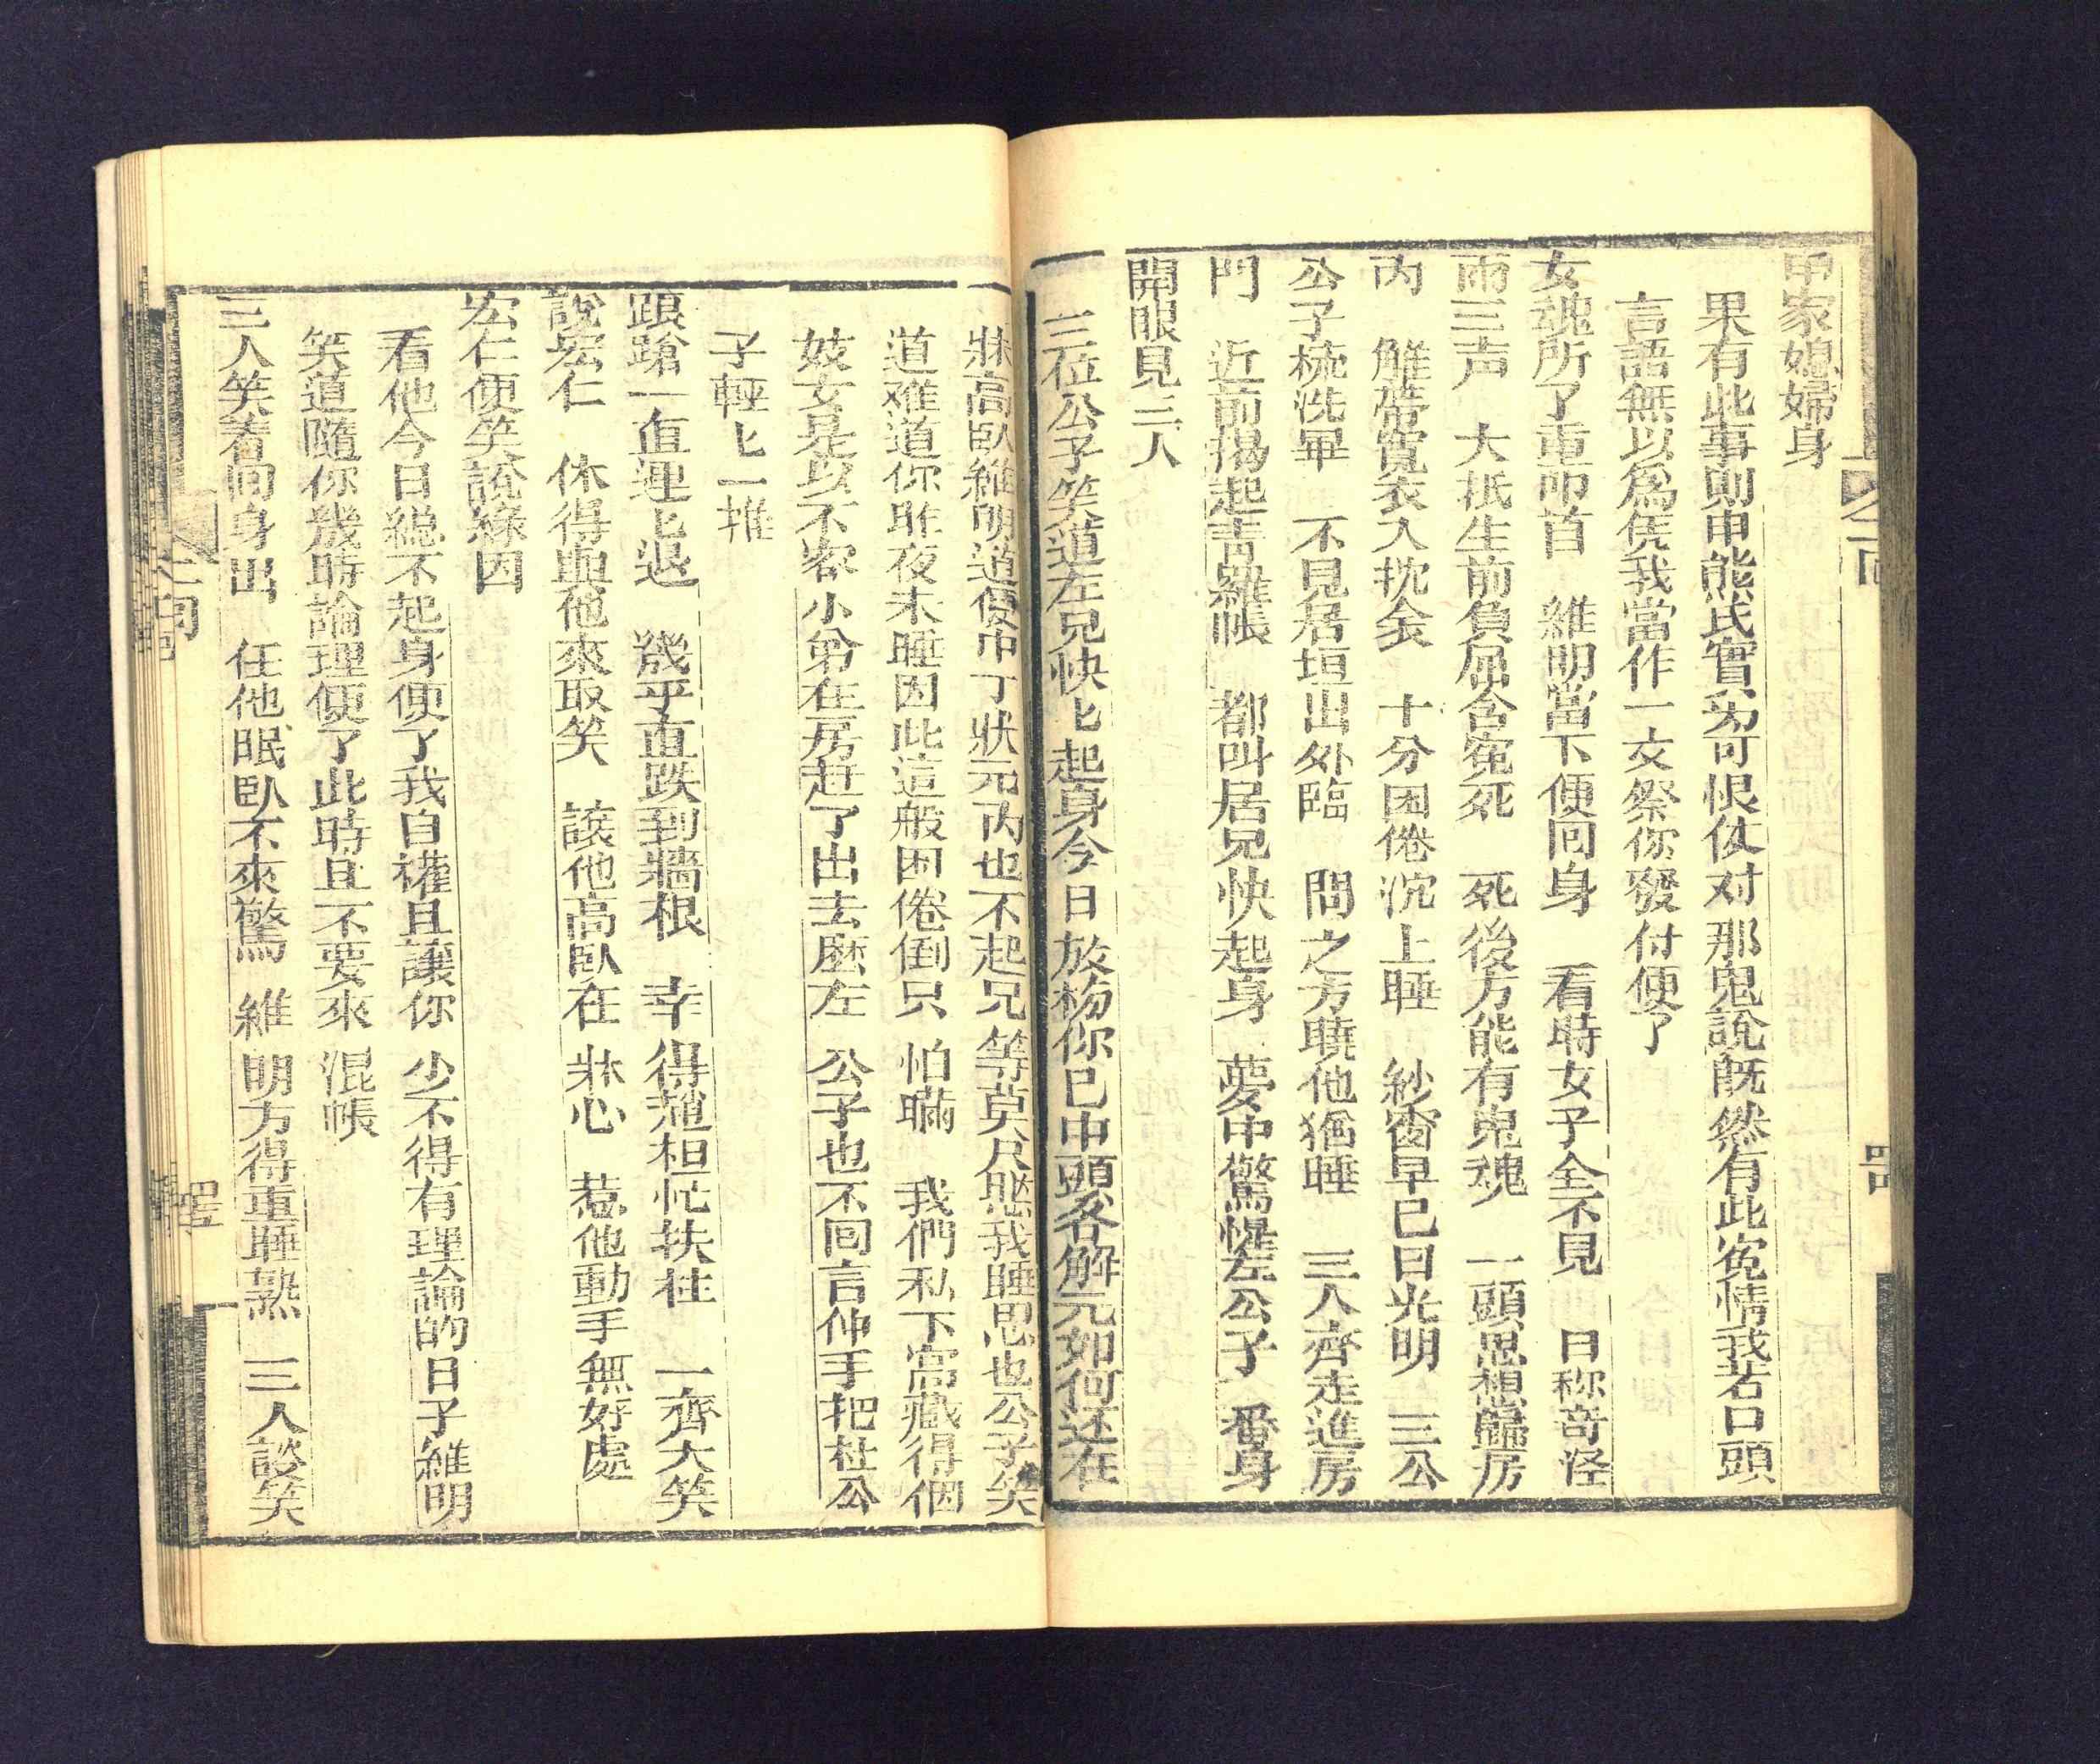 申家媳婦身
果有此事則申熊氏實為可恨伩对那鬼說既然有此寃情我若口頭
言語無以為凭我當作一文祭你發付便了
女魂所了重叩首 維明當下便囘身 看時女子全不見 日称竒怪
兩三声 大抵生前負屈含寃死 死後方能有鬼魂 一頭思想歸房
內 解帶寬衣入枕衾 十分困倦沉上睡 紗窗早已日光明 三公
公子梳洗畢 不見居垣出外臨 問之方曉他猶睡 三人齊走進房
門 近前揭起青羅帳 都叫居兄快起身 夢中驚惺左公子 番身
開眼見三人
三位公子笑道左兄快匕起身今日放榜你已中頭名解元如何还在
牀高臥維明道便中了狀元內也不起兄等莫尺怹我睡思也公子笑
道难道你昨夜未睡因此這般困倦倒只怕瞞我們私下窩藏得個
妓女是以不容小弟在房赶了出去麽左公子也不囘言伸手把杜公
子輕匕一推
踉蹌一直連匕退 幾乎直跌到牆根 幸得趙桓忙扶住 一齊大笑
說宏仁 休得與他來取笑 讓他高臥在牀心 惹他動手無好處
宏仁便笑說緣因
看他今日總不起身便了我自權且讓你少不得有理論的日子維明
笑道隨你幾時論理便了此時且不要來混帳
三人笑着囘身出 任他眠臥不來驚 維明方得重睡熟 三人談笑